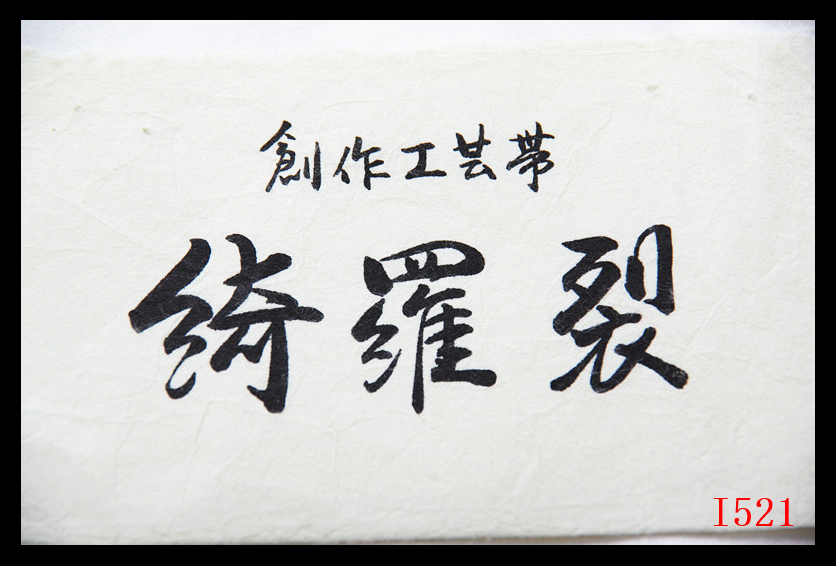 創作工芸帯
綺羅裂
I521